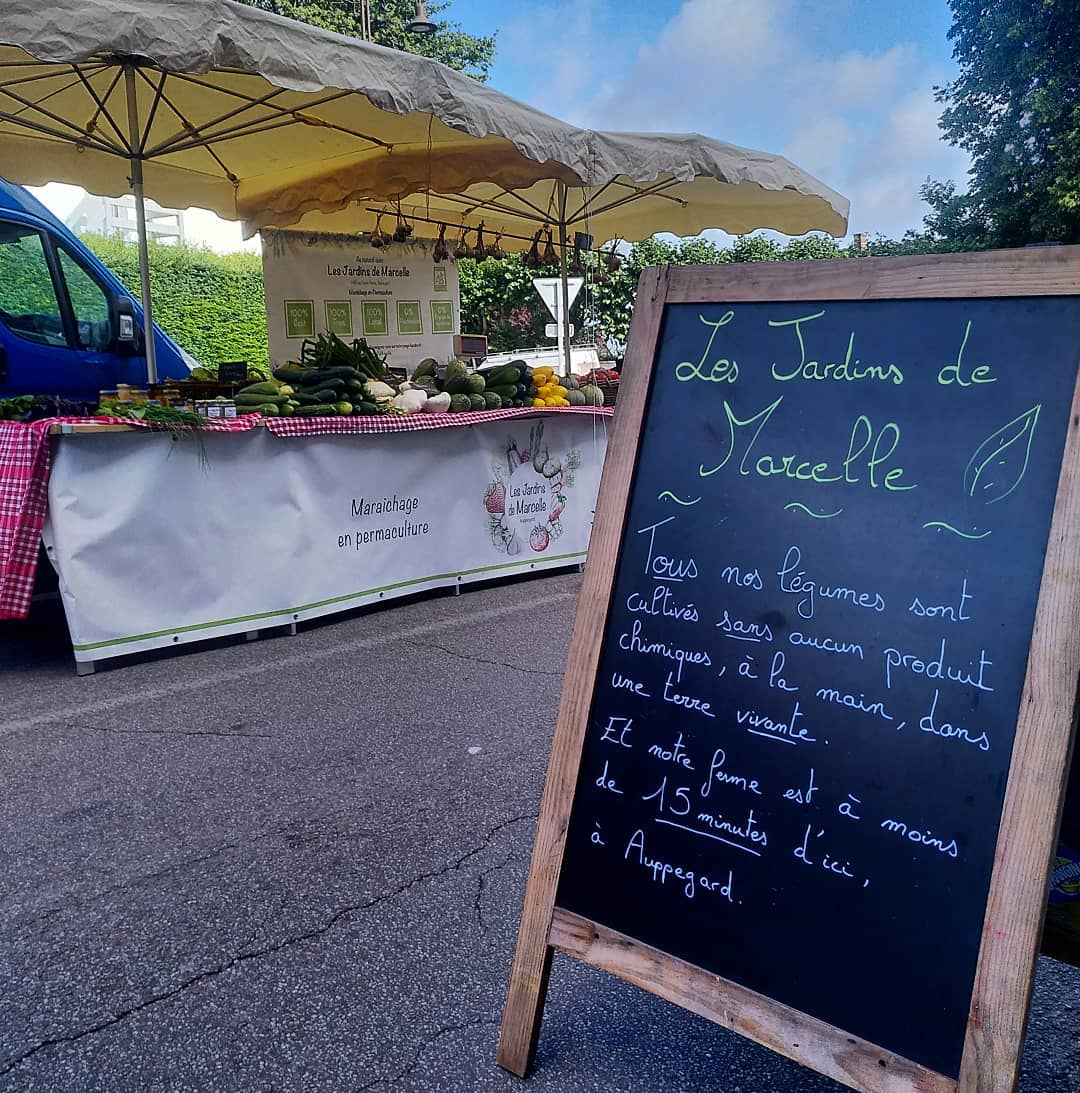 Les Jardins de Marcelle
Maraîchage en Permaculture
100%
100%
100%
0%
0%
Maraîchage
en permaculture
Les Jardins
de Marcelle
Les Jardins de
Marcelle
Tous nos légumes sont
cultivés sans aucun produit
chimiques, à la main, dans
une terre vivante.
Et notre ferme est à moins
de 15 minutes d'ici,
à Auppegard.